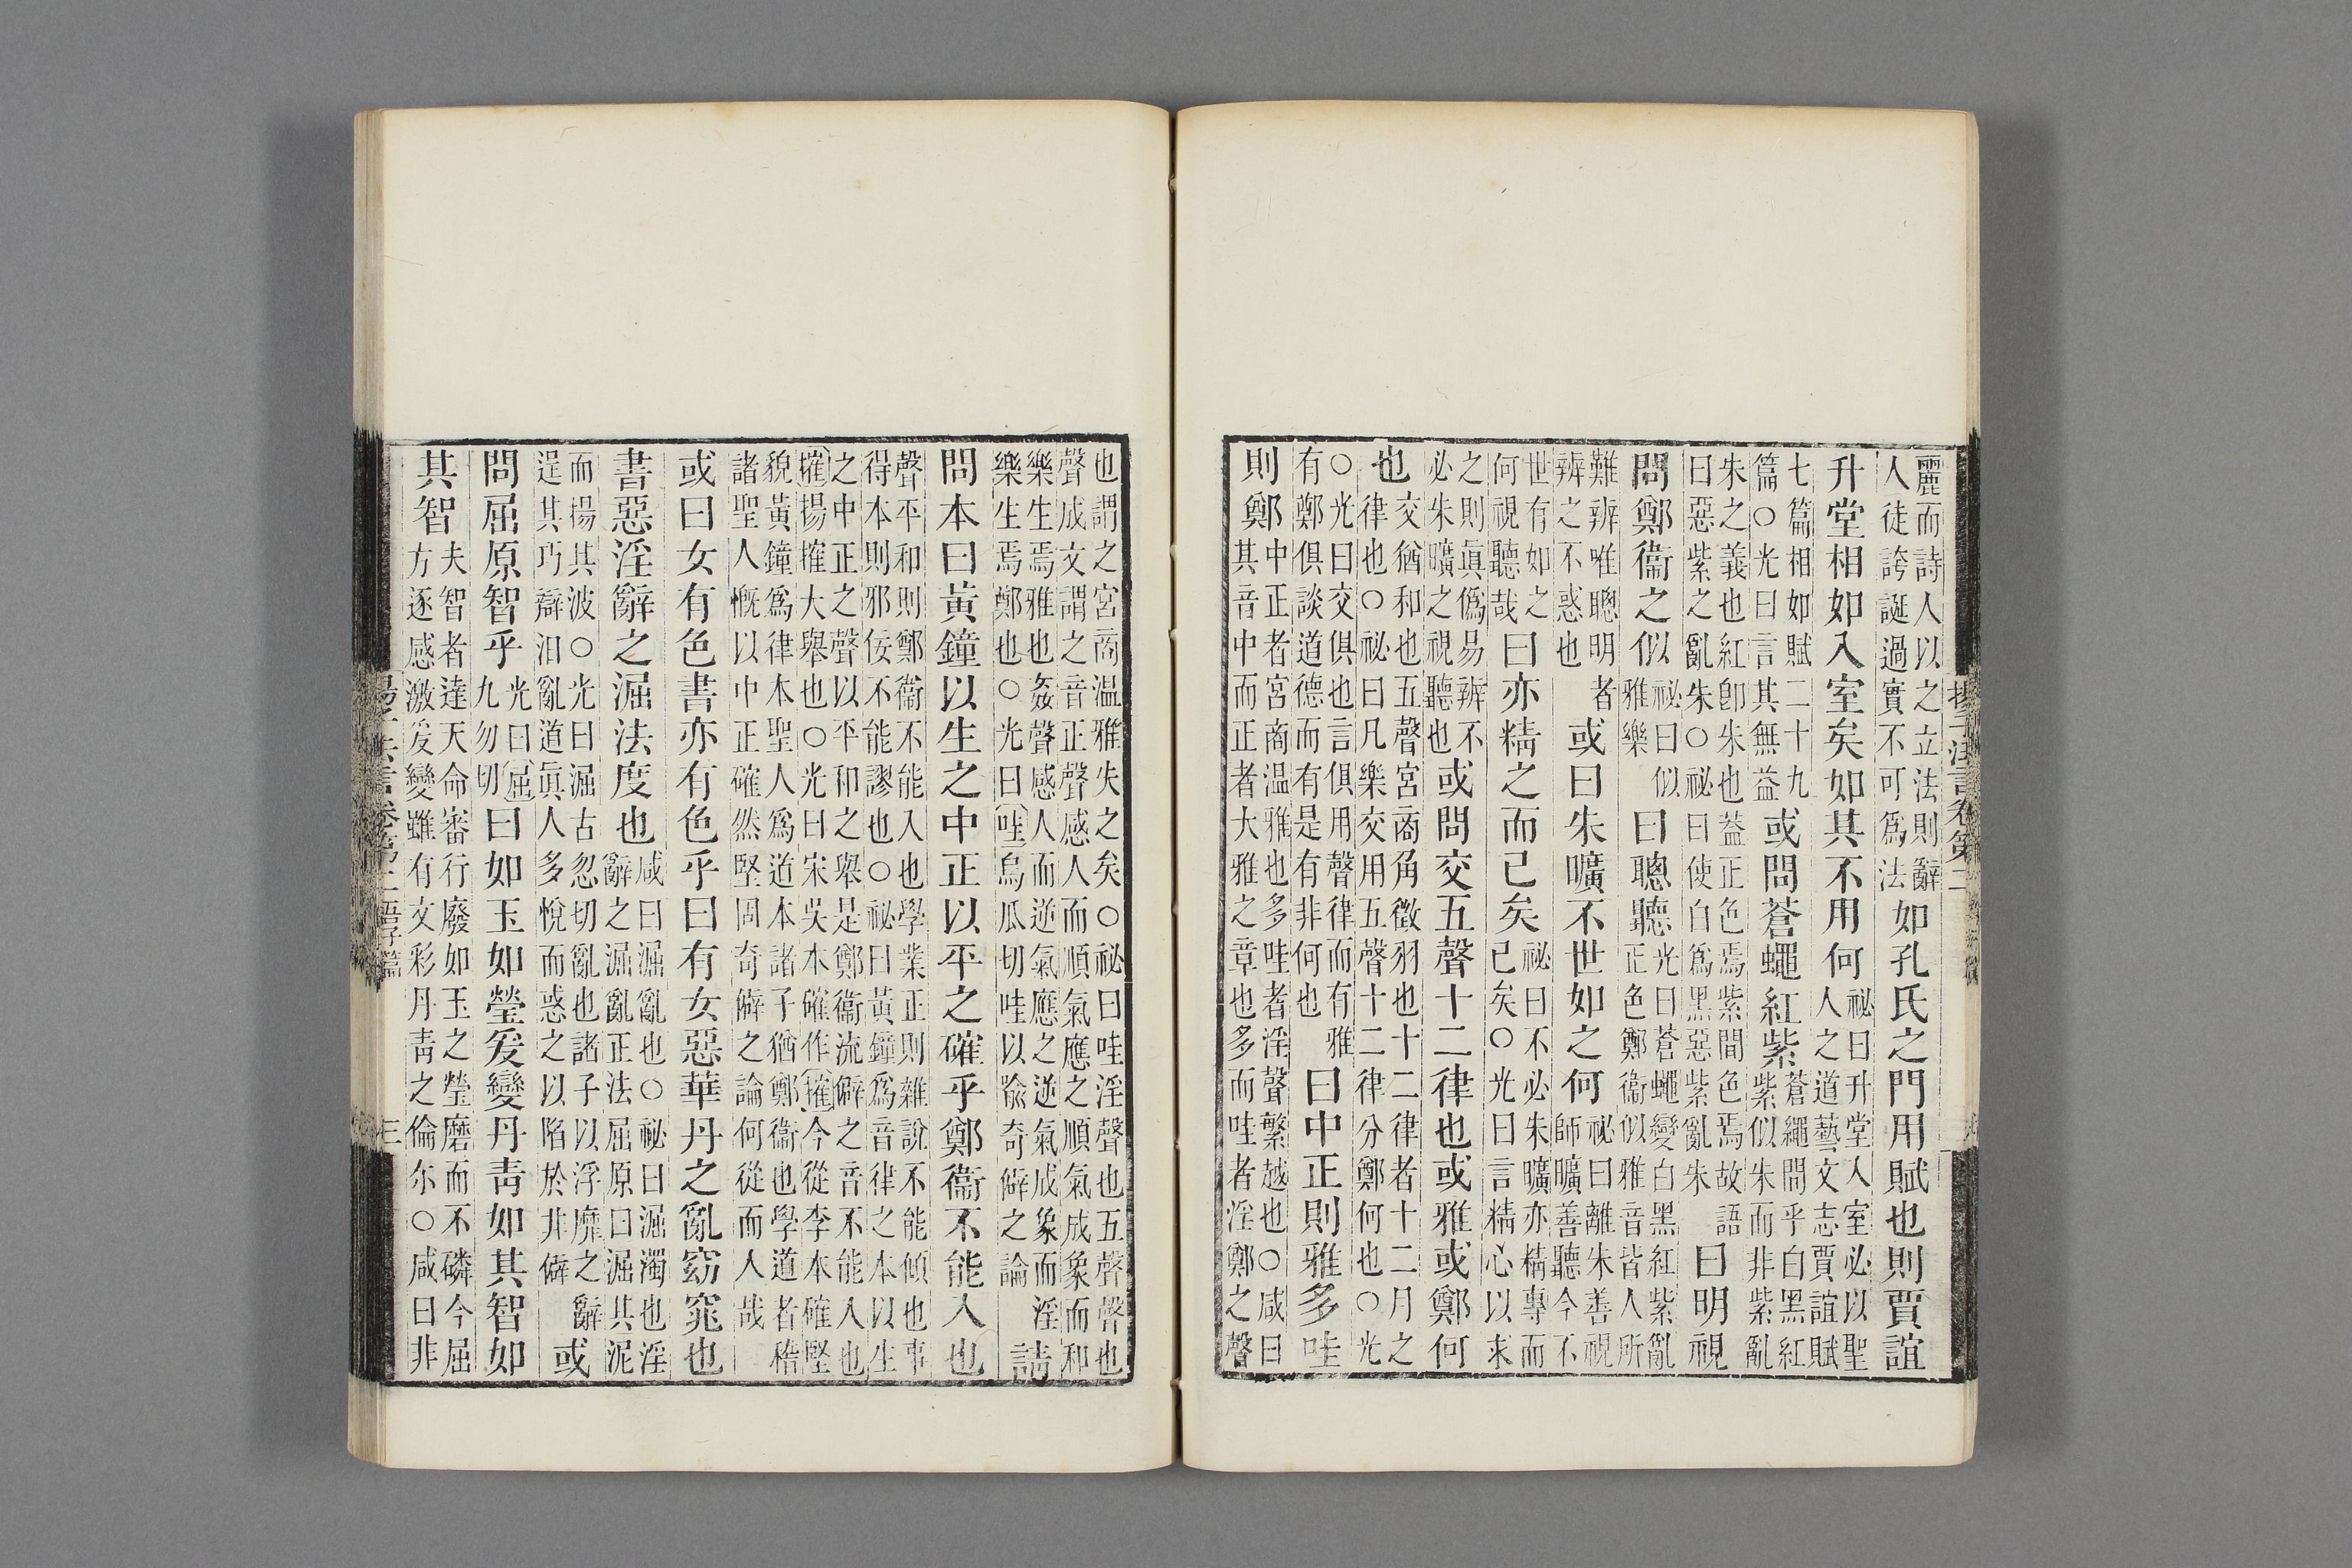 麗而詩人以之立法則辭人徒誇誕過實不可爲法如孔氏之門用賦也則賈誼
升堂相如入室矣如其不用何祕曰升堂入室必以聖人之道藝文志賈誼賦
七篇相如賦二十九篇○光曰言其無益或問蒼蠅紅紫蒼繩間乎白黑紅紫似朱而非紫亂
朱之義也紅卽朱也葢正色焉紫間色焉故語曰惡紫之亂朱○祕曰使白爲黑惡紫亂朱曰明視
問鄭衞之似祕曰似雅樂曰聰聽光曰蒼蠅變白黑紅紫亂正色鄭衞似雅音皆人所
難辨唯聰明者辨之不惑也或曰朱曠不世如之何祕曰離朱善視師曠善聽今不
世有如之何視聽哉曰亦精之而已矣祕曰不必朱曠亦精專而已矣○光曰言精心以求
之則眞僞易辨不必朱曠之視聽也或問交五聲十二律也或雅或鄭何
也交猶和也五聲宮商角徵羽也十二律者十二月之律也○祕曰凡樂交用五聲十二律分鄭何也○光
○光曰交俱也言俱用聲律而有雅有鄭俱談道德而有是有非何也曰中正則雅多哇
則鄭中正者宮商温雅也多哇者淫聲繁越也○咸曰其音中而正者大雅之章也多而哇者淫鄭之聲
揚子法言卷第二
也謂之宮商温雅失之矣○祕曰哇淫聲也五聲聲也聲成文謂之音正聲感人而順氣應之順氣成象而和
樂生焉雅也姦聲感人而逆氣應之逆氣成象而淫樂生焉鄭也○光曰哇烏瓜切哇以喻奇僻之論請
問本曰黃鐘以生之中正以平之確乎鄭衞不能入也
聲平和則鄭衞不能入也學業正則雜說不能傾也事得本則邪佞不能謬也○祕曰黃鐘爲音律之本以生
之中正之聲以平和之舉是鄭衞流僻之音不能入也搉揚搉大舉也○光曰宋吳本確作搉今從李本確堅
貌黃鐘爲律本聖人爲道本諸子猶鄭衞也學道者稽諸聖人慨以中正確然堅固奇僻之論何從而人哉
或曰女有色書亦有色乎曰有女惡華丹之亂窈窕也
書惡淫辭之淈法度也咸曰淈亂也○祕曰淈濁也淫辭之淈亂正法屈原曰淈其泥
而揚其波○光曰淈古忽切亂也諸子以浮靡之辭逞其巧辯汨亂道眞人多悅而惑之以陷於非僻或
問屈原智乎光曰屈九勿切曰如玉如瑩爰變丹靑如其智如
其智夫智者達天命審行廢如玉之瑩磨而不磷今屈方逐感激爰變雖有文彩丹靑之倫尔○咸曰非
揚子法言卷第二 吾子篇 三